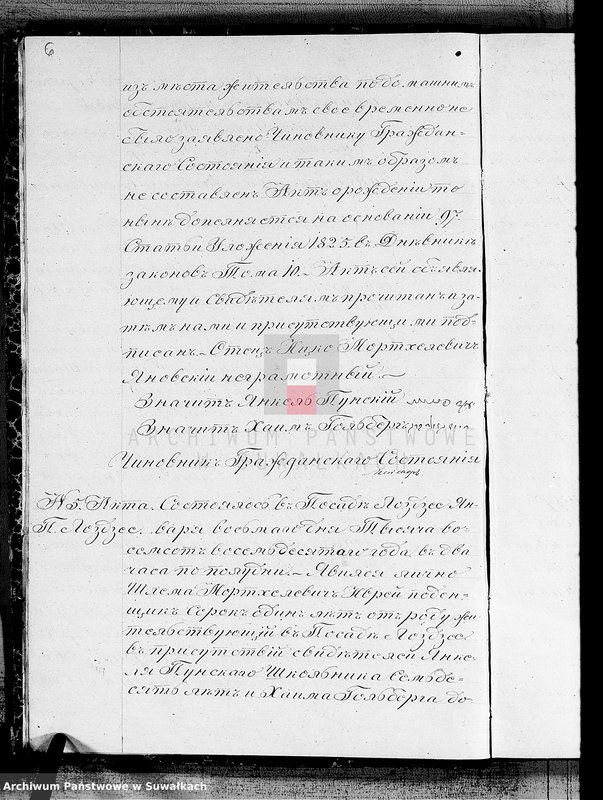 6
изъ мѣста жительства по домашнимъ
обстоятельствамъ свое временно не
было заявлено Чиновнику Граждан-
скаго Состоянія и такимъ образомъ
не составленъ Актъ о рожденіи то
нынѣ дополняется на основаніи 97.
Статьи Уложенія 1825. въ Дневникѣ
законовъ Тома 10. Актъ сей объявля-
ющему и свидѣтелямъ прочитанъ и за-
тѣмъ нами и присутствующими под-
писанъ. Отецъ Ицко Мортхелевичъ
Яновскій неграмотный.
Значитъ Янкель Пунскій
Значитъ Хаимъ Гольбергъ
Чиновникъ Гражданскаго Состоянія
№ 5. Акта. Состоялось въ Посадѣ Лоздзее Ян-
П. Лоздзее. варя восьмаго дня Тысяча во-
семсотъ восемьдесятаго года, въ два
часа по полудни. Явился лично
Шлема Мортхелевичъ Еврей поден-
щикъ Сорокъ одинъ лѣтъ отъ роду жи-
тельствующій въ Посадѣ Лоздзее
въ присутствіи свидѣтелей Янке-
ля Пунскаго Школьника Семьде-
сятъ лѣтъ и Хаима Гольберга до-
ARCHIWUM PAŃSTWOWE
W SUWAŁKACH
Archiwum Państwowe w Suwałkach